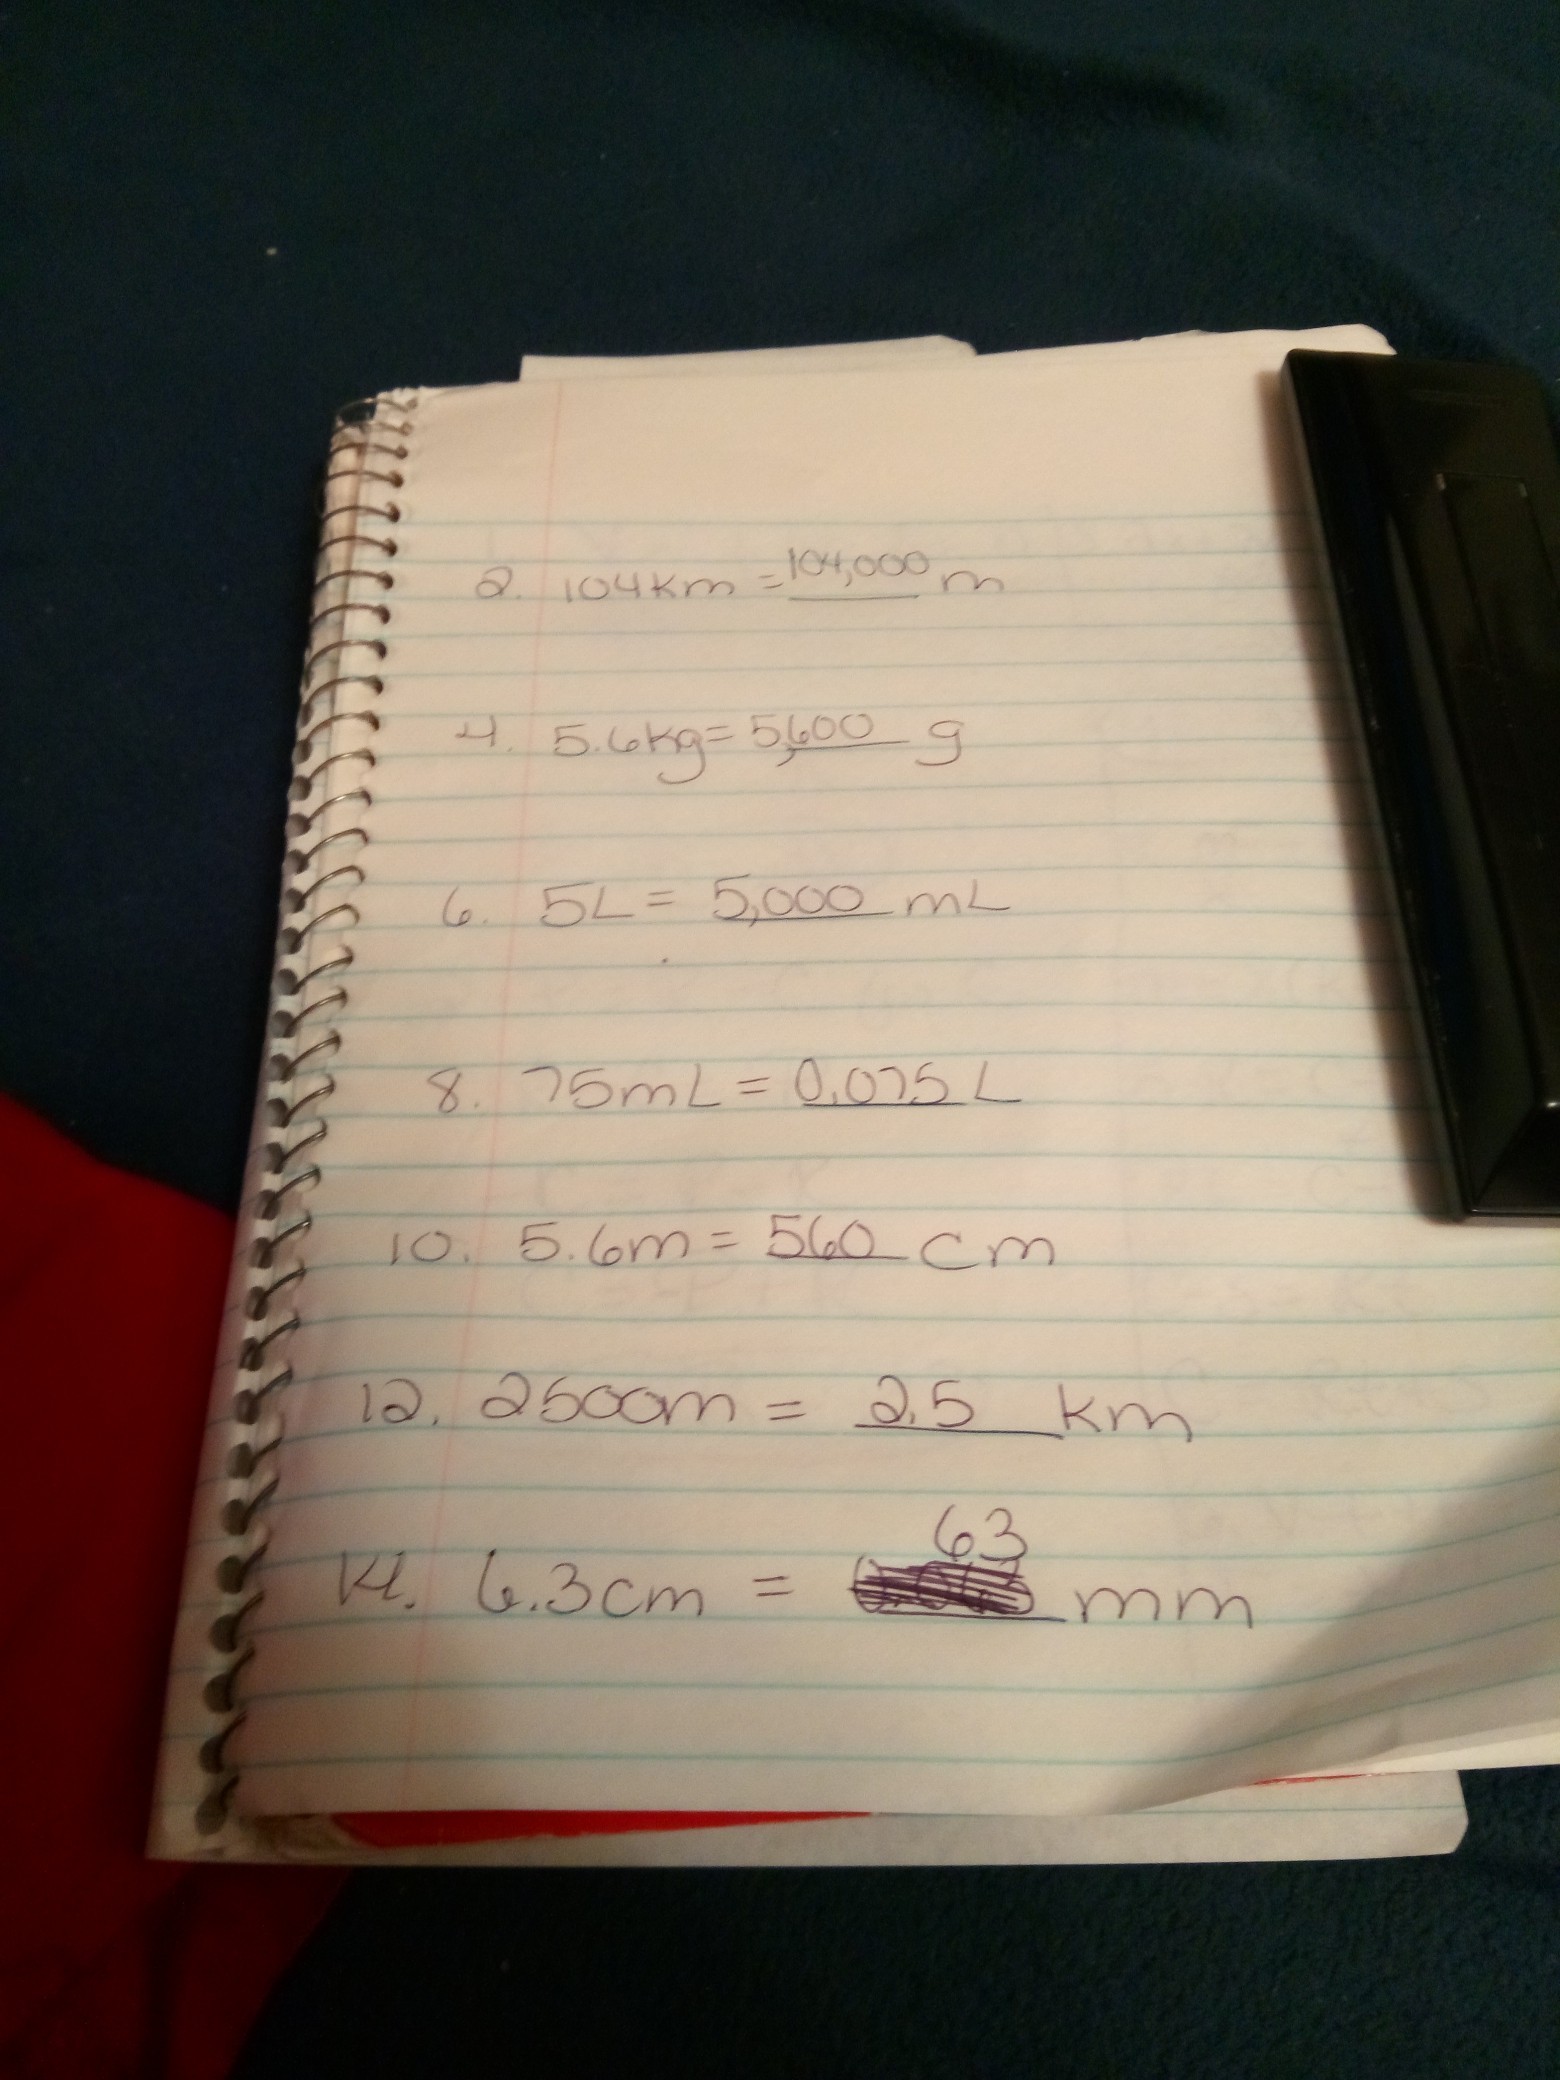 2. 104km = 104,000 m
4. 5.6kg = 5,600 g
6. 5L = 5,000 mL
8. 75mL = 0.075 L
10. 5.6m = 560 cm
12. 2500m = 2.5 km
14. 6.3cm = 63 mm